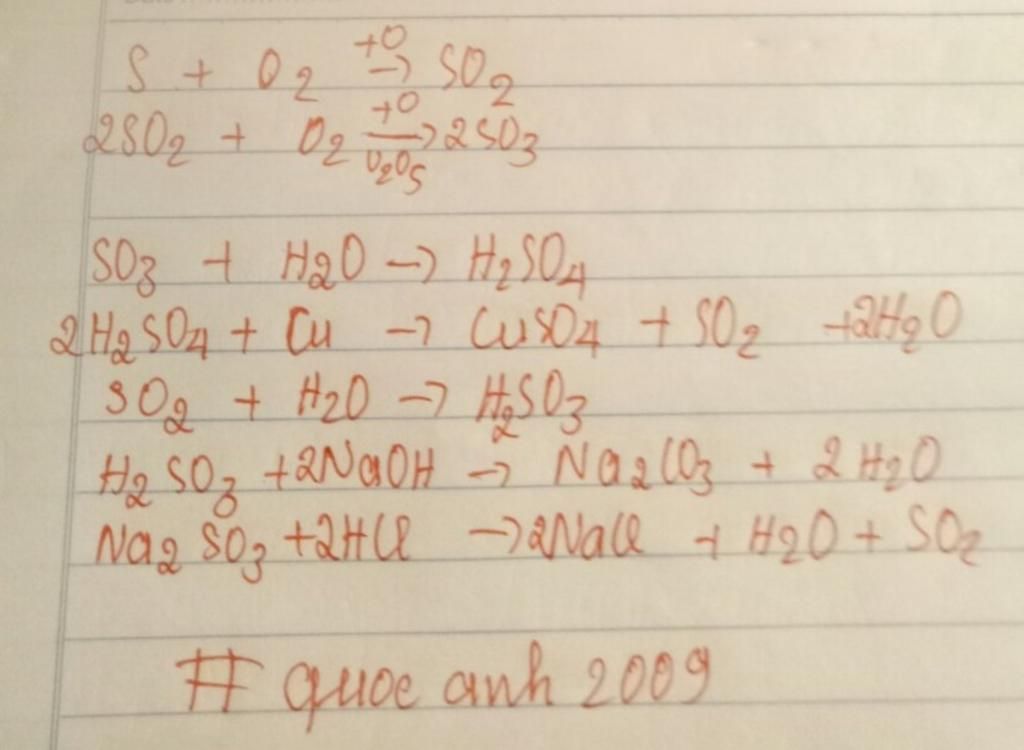 S + O2 +O → SO2
2SO2 + O2 +O → V2O5 2SO3
SO3 + H2O → H2SO4
2H2SO4 + Cu → CuSO4 + SO2 +2H2O
SO2 + H2O → H2SO3
H2SO3 +2NaOH → Na2CO3 + 2H2O
Na2SO3 +2HCl → 2NaCl + H2O + SO2
# quoc anh 2009